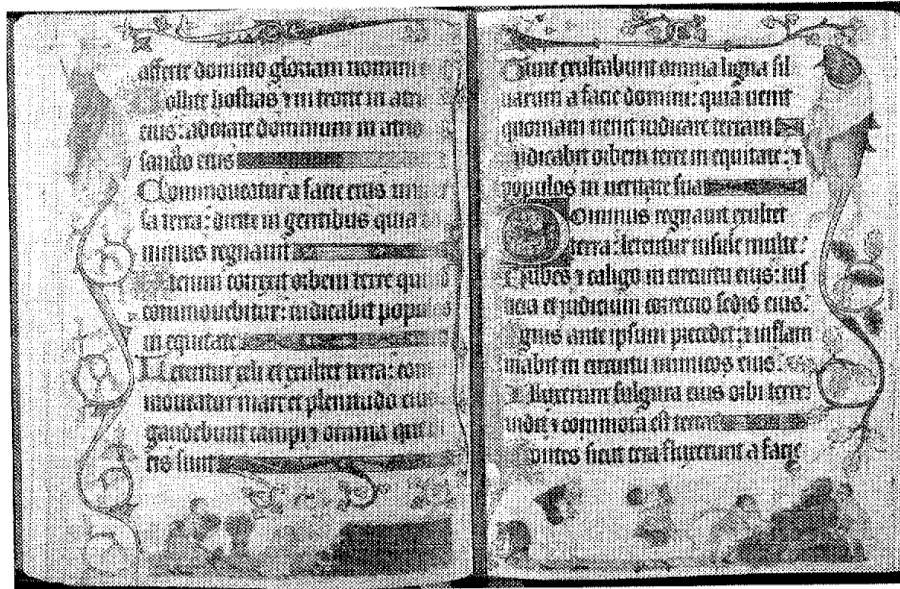 afferte domino gloriam nomini
ollite hostias ⁊ introite in atri
eius: adorate dominum in atrio
sancto eius
Commoueatur a facie eius uni
sa terra: dicite in gentibus quia
minus regnauit
tenim correxit orbem terre qui
commouebitur: iudicabit populos
in equitate
Letentur celi et exultet terra: com
moueatur mare et plenitudo eius
gaudebunt campi ⁊ omnia que in
eis sunt
Tunc exultabunt omnia ligna sil
uarum a facie domini: quia uenit
quoniam uenit iudicare terram
udicabit orbem terre in equitate: ⁊
populos in ueritate sua
Dominus regnauit exultet
terra: letentur insule multe:
Nubes ⁊ caligo in circuitu eius: ius
ticia et iudicium correctio sedis eius.
gnis ante ipsum precedet: ⁊ inflam
mabit in circuitu inimicos eius
lluxerunt fulgura eius orbi terre:
uidit ⁊ commota est terra
ontes sicut cera fluxerunt a facie